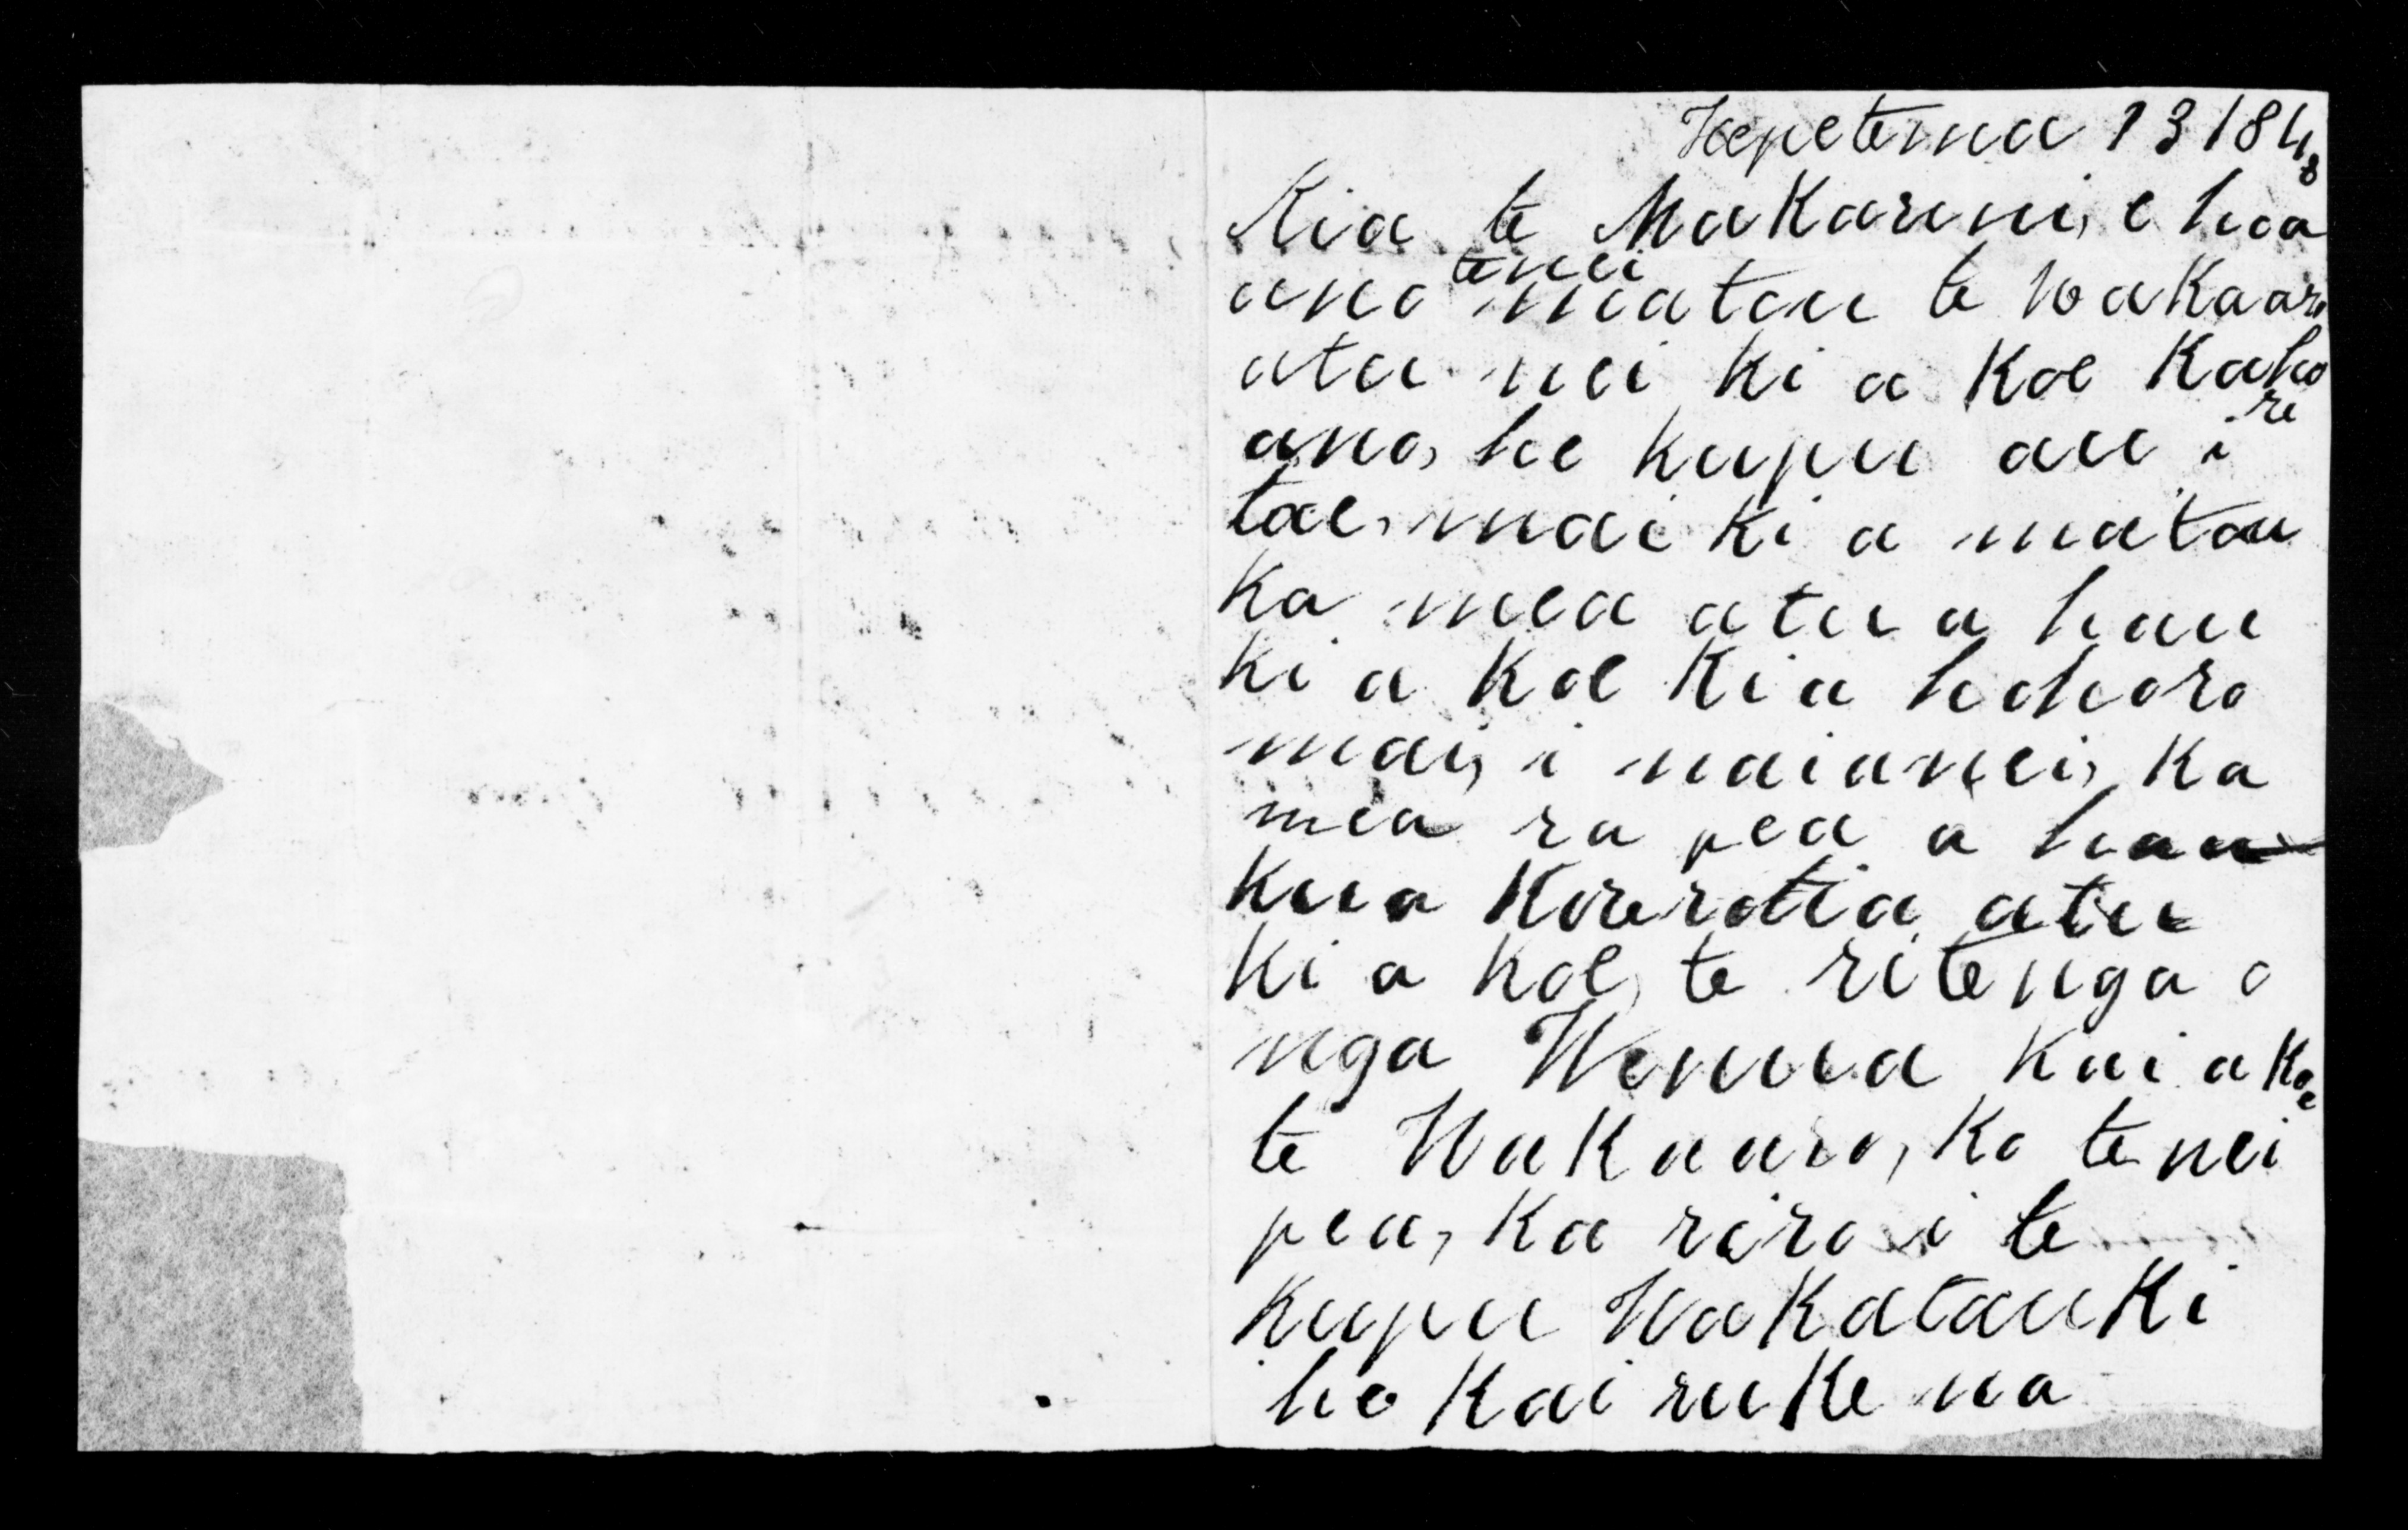 Hepetema 13 1848
Kia te Makarini, e hoa
ano tenei matou te wakaaro
atu nei ki a Koe Kahore
ano, he kupu au i
tae, mai ki a matou
Ka mea atu a hau
Ki a Koe Kia hohoro
mai, i naianei, Ka
mea ra pea a hau
Kua Korerotia atu
Ki a Koe, te ritenga o
nga Wenua Kei a Koe
te Wakaaro, Ko te nei
pea, Ka riro i te
Kupu Wakatauki
he Kai ruke na